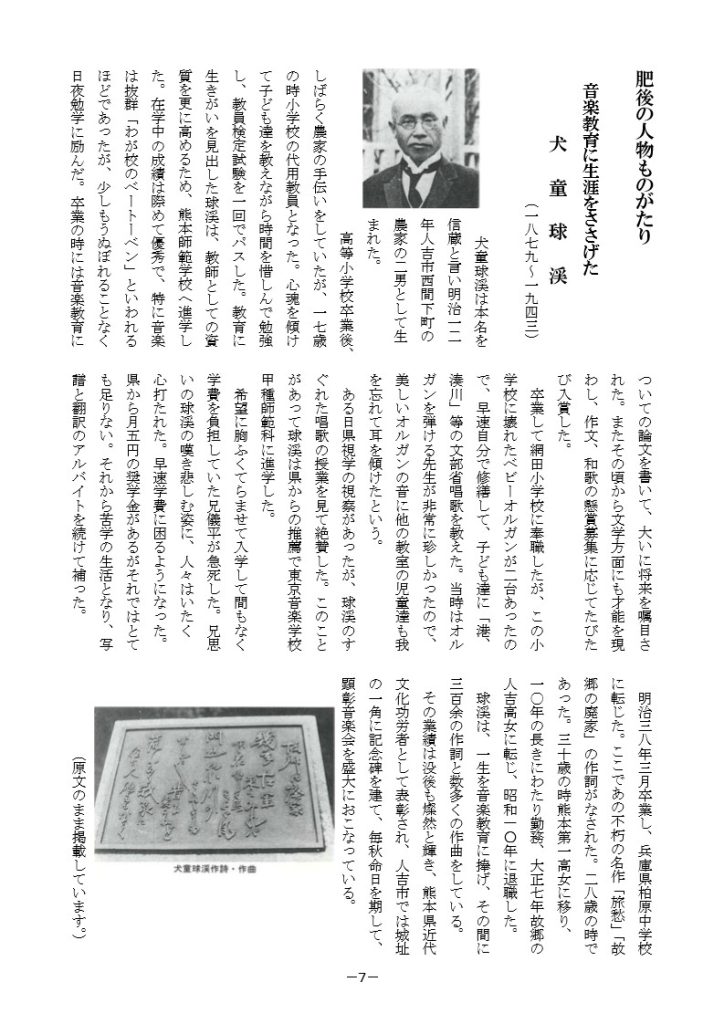 肥後の人物ものがたり
音楽教育に生涯をささげた
犬童球渓
(一八七九〜一九四三)
犬童球渓は本名を
信蔵と言い明治一二
年人吉市西間下町の
農家の二男として生
まれた。
高等小学校卒業後、
しばらく農家の手伝いをしていたが、一七歳
の時小学校の代用教員となった。心魂を傾け
て子ども達を教えながら時間を惜しんで勉強
し、教員検定試験を一回でパスした。教育に
生きがいを見出した球渓は、教師としての資
質を更に高めるため、熊本師範学校へ進学し
た。在学中の成績は際めて優秀で、特に音楽
は抜群「わが校のベートーベン」といわれる
ほどであったが、少しもうぬぼれることなく
日夜勉学に励んだ。卒業の時には音楽教育に
ついての論文を書いて、大いに将来を嘱目さ
れた。またその頃から文学方面にも才能を現
わし、作文、和歌の懸賞募集に応じてたびた
び入賞した。
卒業して網田小学校に奉職したが、この小
学校に壊れたベビーオルガンが二台あったの
で、早速自分で修繕して、子ども達に「港、
湊川」等の文部省唱歌を教えた。当時はオル
ガンを弾ける先生が非常に珍しかったので、
美しいオルガンの音に他の教室の児童達も我
を忘れて耳を傾けたという。
ある日県視学の視察があったが、球渓のす
ぐれた唱歌の授業を見て絶賛した。このこと
があって球渓は県からの推薦で東京音楽学校
甲種師範科に進学した。
希望に胸ふくてらませて入学して間もなく
学費を負担していた兄儀平が急死した。兄思
いの球渓の嘆き悲しむ姿に、人々はいたく
心打たれた。早速学費に困るようになった。
県から月五円の奨学金があるがそれではとて
も足りない。それから苦学の生活となり、写
譜と翻訳のアルバイトを続けて補った。
明治三八年三月卒業し、兵庫県柏原中学校
に転じた。ここであの不朽の名作「旅愁」「故
郷の廃家」の作詞がなされた。二八歳の時で
あった。三十歳の時熊本第一高女に移り、
一〇年の長きにわたり勤務、大正七年故郷の
人吉高女に転じ、昭和一〇年に退職した。
球渓は、一生を音楽教育に捧げ、その間に
三百余の作詞と数多くの作曲をしている。
その業績は没後も燦然と輝き、熊本県近代
文化功労者として表彰され、人吉市では城址
の一角に記念碑を建て、毎秋命日を期して、
顕彰音楽会を盛大におこなっている。
犬童球渓作詩・作曲
(原文のまま掲載しています。)
－7－